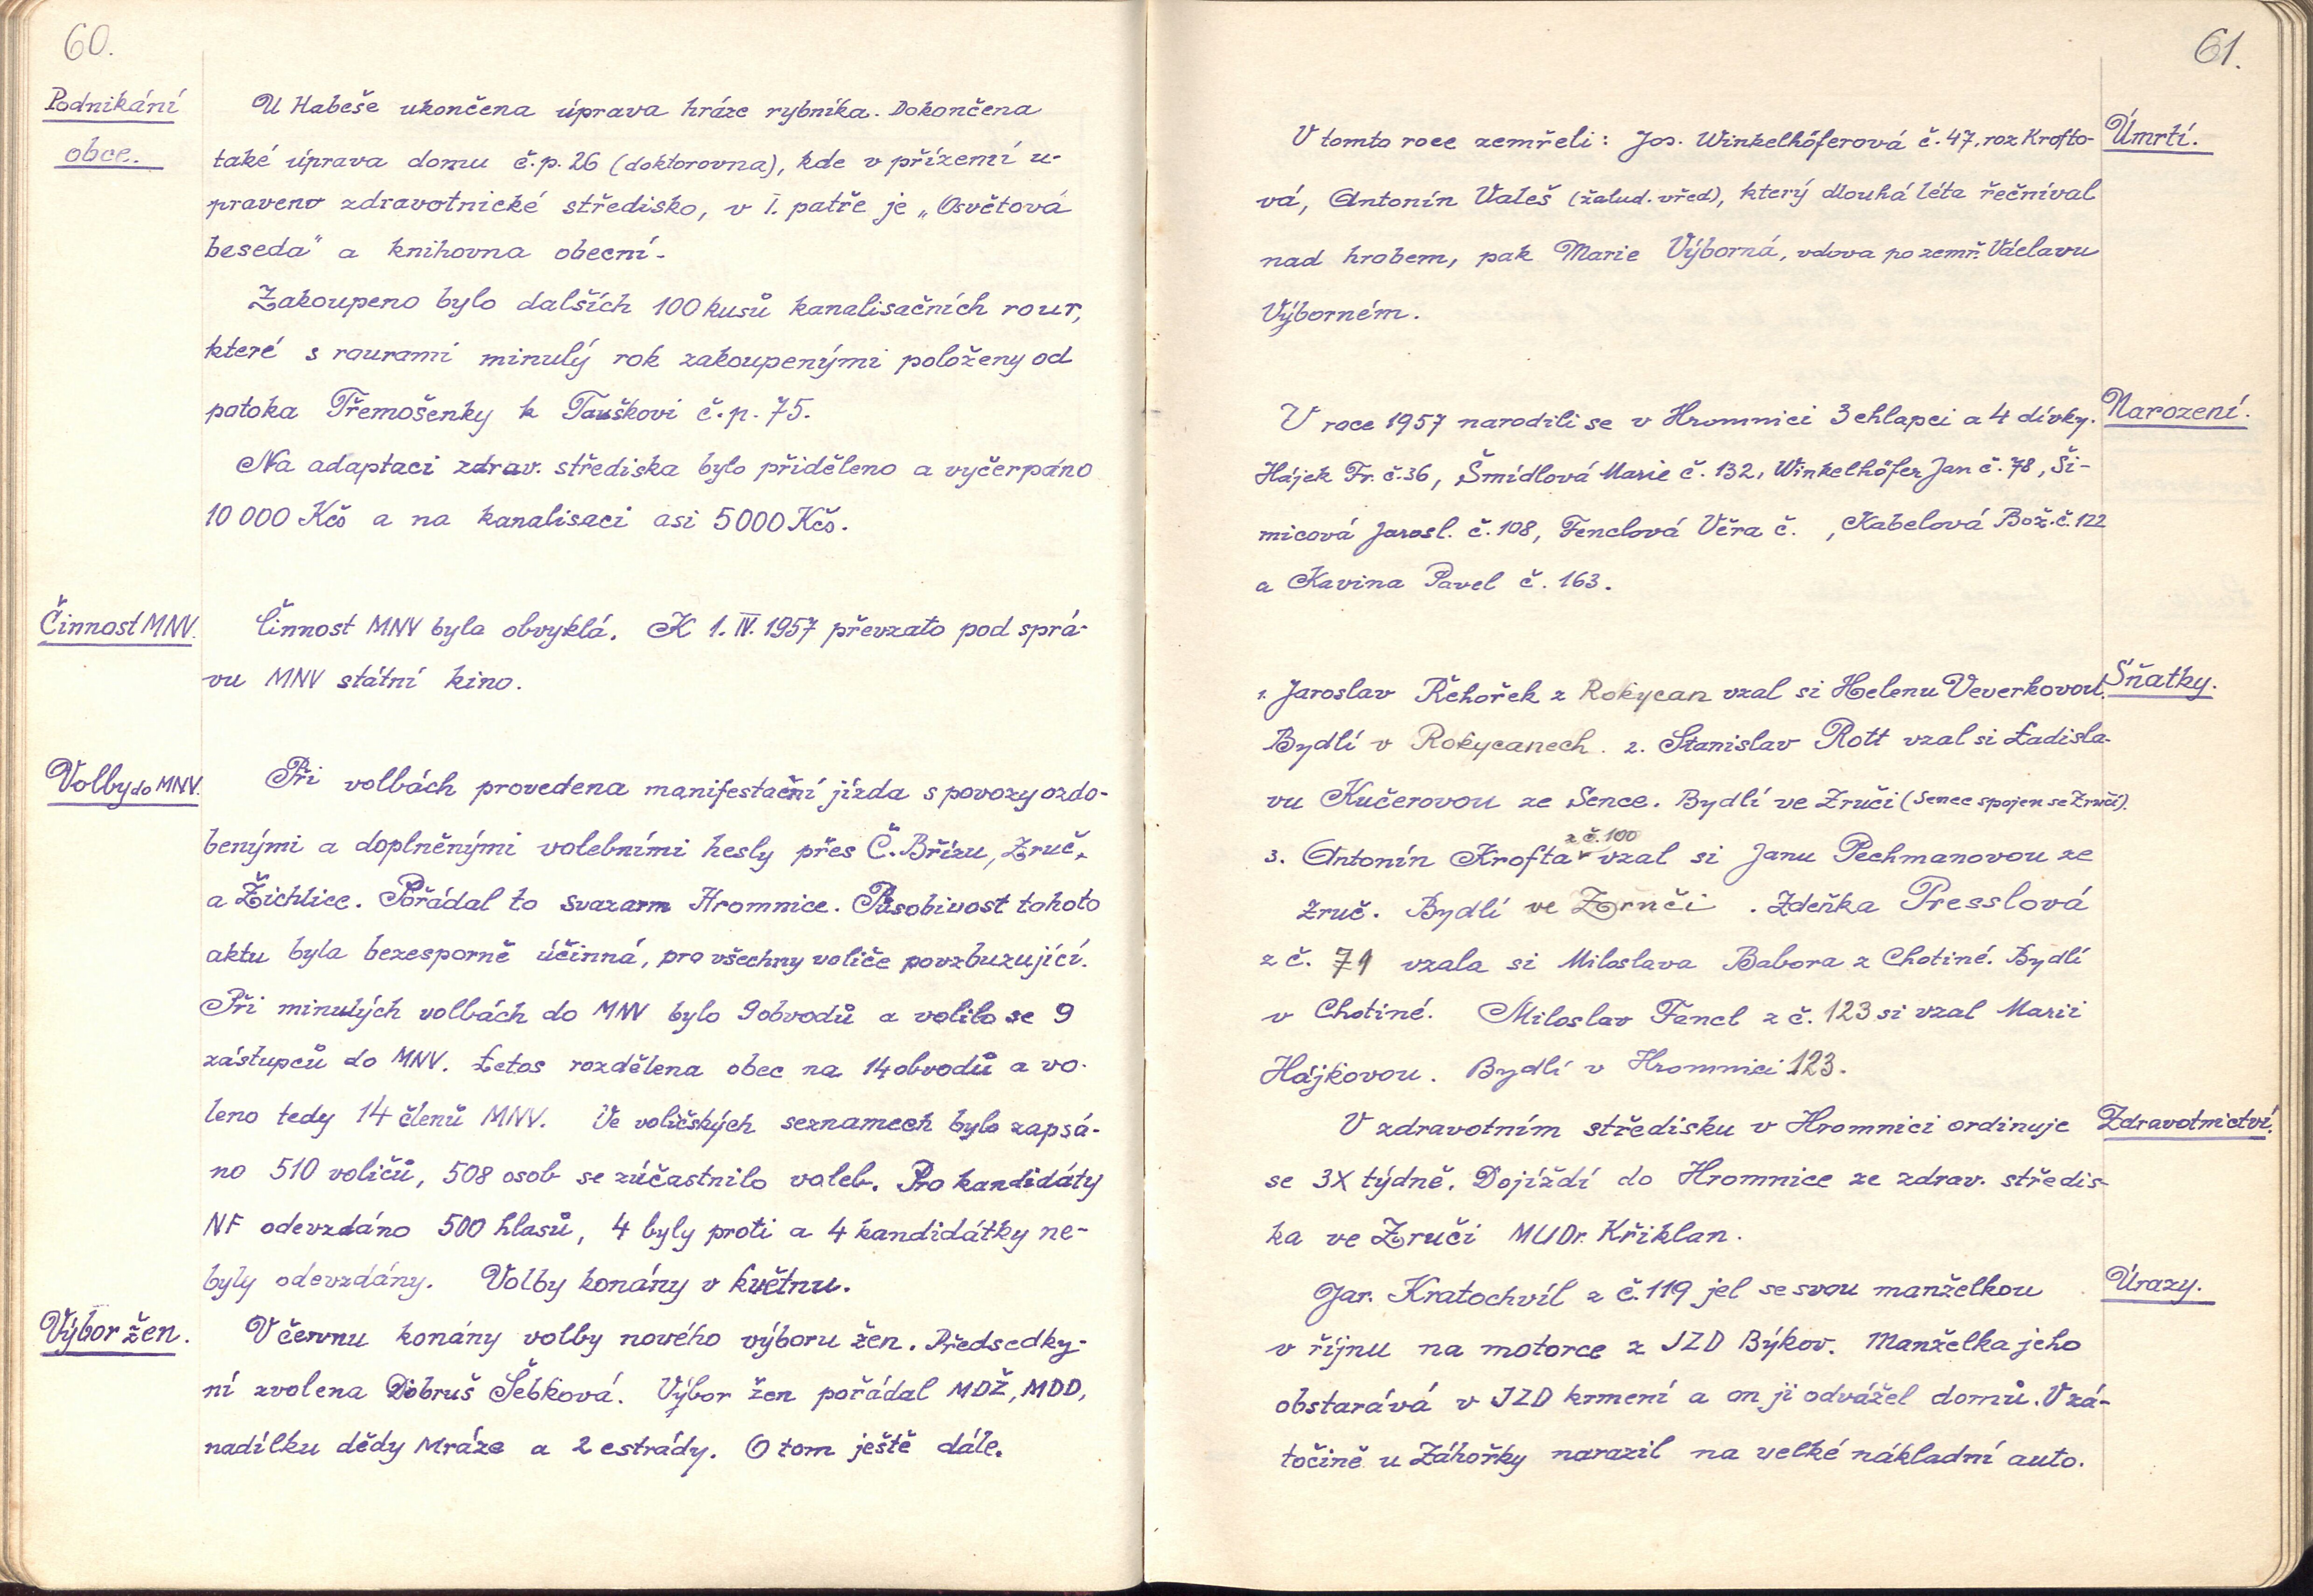 60.
Podnikání
obce.
U Habeše ukončena úprava hráze rybníka. Dokončena
také úprava domu č.p. 26 (doktorovna), kde v přízemí u-
praveno zdravotnické středisko, v I. patře je „Osvětová
beseda" a knihovna obecní.
Zakoupeno bylo dalších 100 kusů kanalisačních rour,
které s rourami minulý rok zakoupenými položeny od
potoka Třemošenky k Tauškovi č.p. 75.
Na adaptaci zdrav. střediska bylo přiděleno a vyčerpáno
10 000 Kčs a na kanalisaci asi 5000 Kčs.
Činnost MNV.
Činnost MNV byla obvyklá. K 1. IV. 1957 převzato pod sprá-
vu MNV státní kino.
Volby do MNV.
Při volbách provedena manifestační jízda s povozy ozdo-
benými a doplněnými volebními hesly přes Č. Břízu, Zruč,
a Žichlice. Pořádal to svazarm Hromnice. Působivost tohoto
aktu byla bezesporně účinná, pro všechny voliče povzbuzující.
Při minulých volbách do MNV bylo 9 obvodů a volilo se 9
zástupců do MNV. Letos rozdělena obec na 14 obvodů a vo-
leno tedy 14 členů MNV. Ve voličských seznamech bylo zapsá-
no 510 voličů, 508 osob se zúčastnilo voleb. Pro kandidáty
NF odevzdáno 500 hlasů, 4 byly proti a 4 kandidátky ne-
byly odevzdány. Volby konány v květnu.
Výbor žen.
V červnu konány volby nového výboru žen. Předsedky-
ní zvolena Dobruš Šebková. Výbor žen pořádal MDŽ, MDD,
nadílku dědy Mráze a 2 estrády. O tom ještě dále.
61.
Úmrtí.
V tomto roce zemřeli: Jos. Winkelhöferová č. 47, roz Krofto-
vá, Antonín Valeš (žalud. vřed), který dlouhá léta řečníval
nad hrobem, pak Marie Výborná, vdova po zemř. Václavu
Výborném.
Narození.
V roce 1957 narodili se v Hromnici 3 chlapci a 4 dívky.
Hájek Fr. č. 36, Šmídlová Marie č. 132, Winkelhöfer Jan č. 78, Ši-
micová Jarosl. č. 108, Fenclová Věra č. , Kabelová Bož. č. 122
a Kavina Pavel č. 163.
Sňatky.
1. Jaroslav Řehořek z Rokycan vzal si Helenu Veverkovou.
Bydlí v Rokycanech. 2. Stanislav Rott vzal si Ladisla-
vu Kučerovou ze Sence. Bydlí ve Zruči (Senec spojen se Zručí).
z č. 100
3. Antonín Krofta vzal si Janu Pechmanovou ze
Zruč. Bydlí ve Zruči. Zdeňka Presslová
z č. 71 vzala si Miloslava Babora z Chotiné. Bydlí
v Chotiné. Miloslav Fencl z č. 123 si vzal Marii
Hájkovou. Bydlí v Hromnici 123.
Zdravotnictví.
V zdravotním středisku v Hromnici ordinuje
se 3X týdně. Dojíždí do Hromnice ze zdrav. středis-
ka ve Zruči MUDr. Křiklan.
Úrazy.
Jar. Kratochvíl z č. 119 jel se svou manželkou
v říjnu na motorce z JZD Býkov. Manželka jeho
obstarává v JZD krmení a on ji odvážel domů. V zá-
točině u Záhořky narazil na velké nákladní auto.